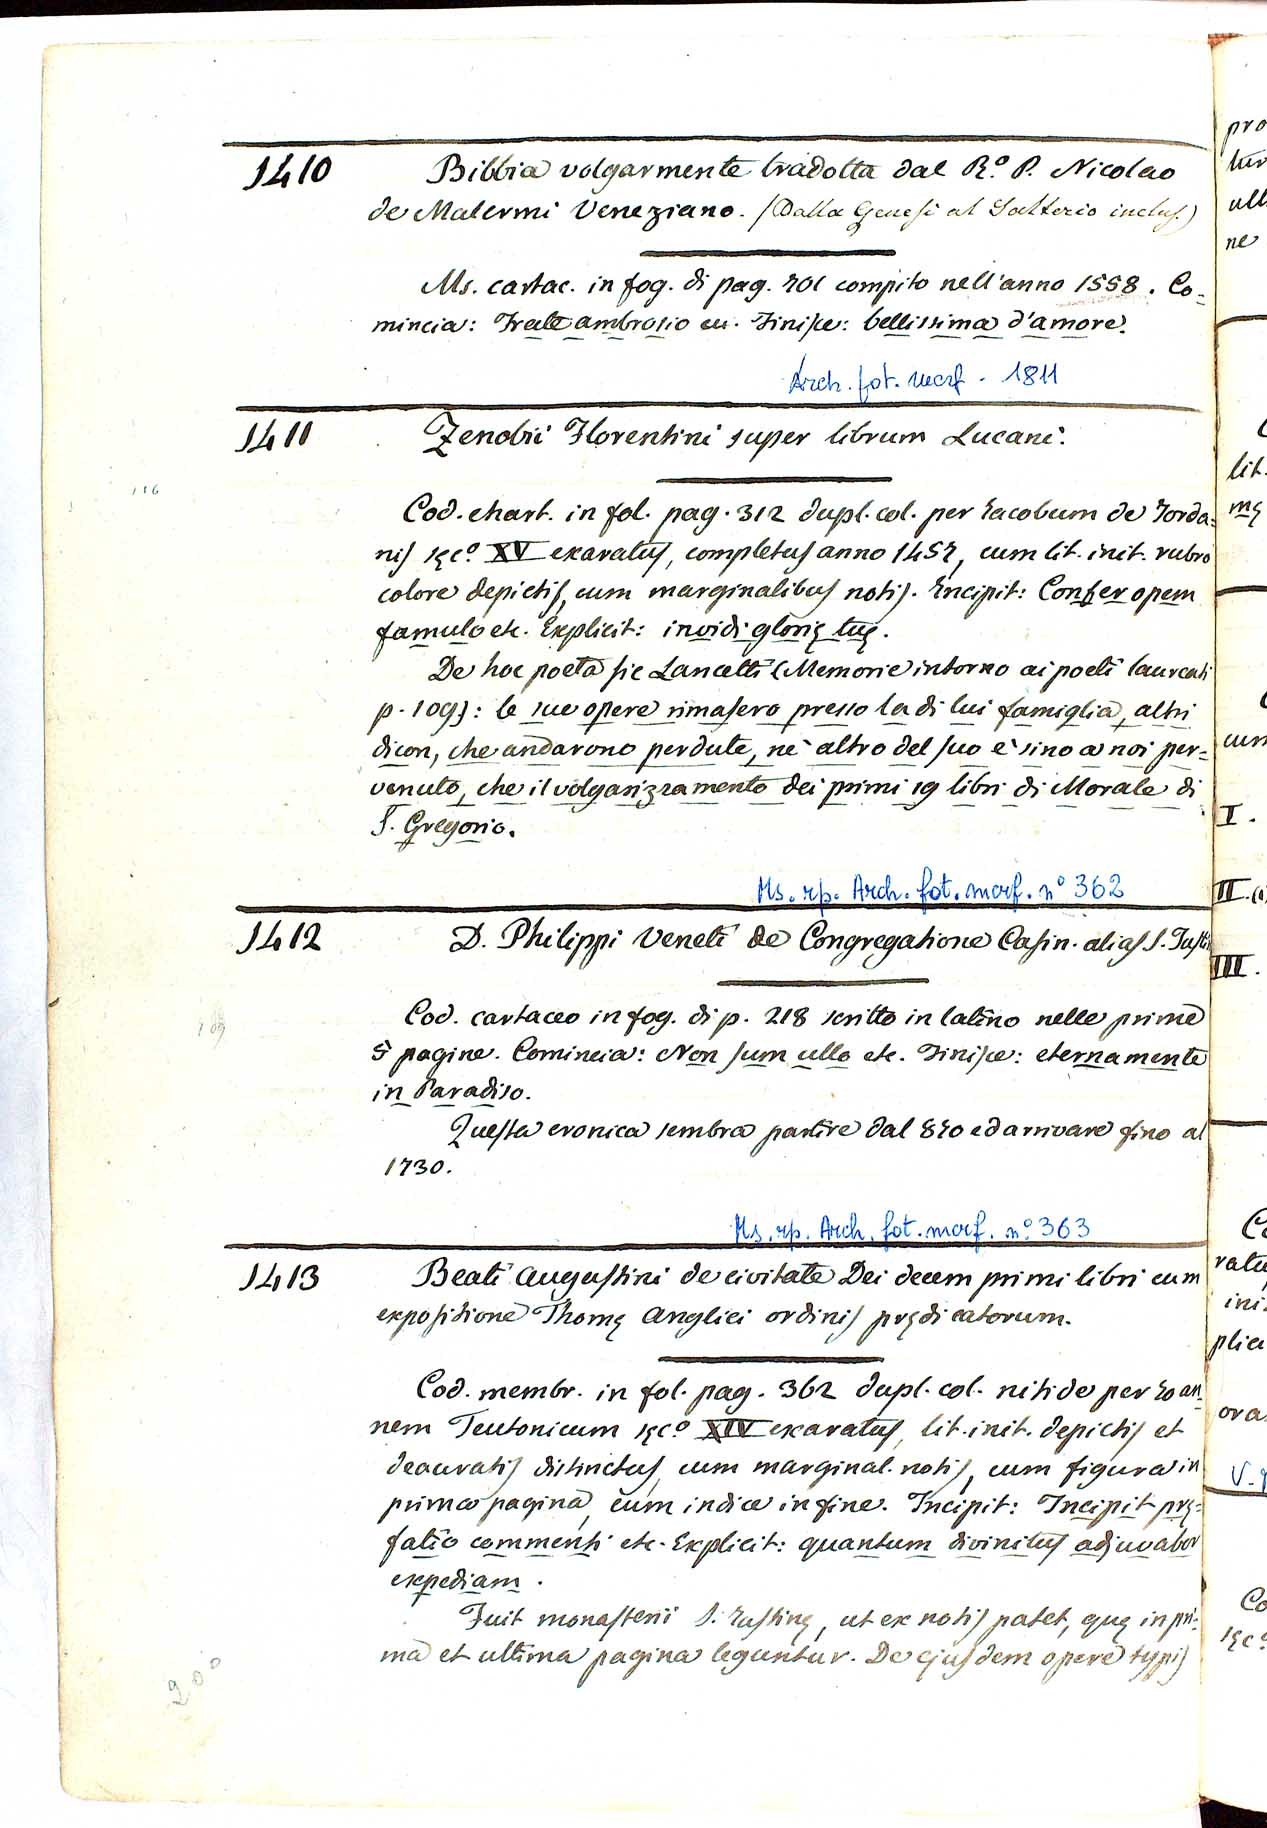 1410 Bibbia volgarmente tradotta dal R.º P. Nicolao
de Malermi Veneziano. (Dalla Genesi al Salterio inclus.)
Ms. cartac. in fog. di pag. 701 compito nell'anno 1558. Co=
mincia: Frate ambrosio ec. Finisce: bellissima d'amore.
Arch. fot. marf. 1811
1411 Zenobii Florentini super librum Lucani.
116
Cod. chart. in fol. pag. 312 dupl. col. per Iacobum de Iorda=
nis sęcº XV exaratus, completus anno 1457, cum lit. init. rubro
colore depictis, cum marginalibus notis. Incipit: Confer opem
famulo etc. Explicit: invidi glorię tuę.
De hoc poeta sic Lancetti (Memorie intorno ai poeti laureati
p. 109): le sue opere rimasero presso la di lui famiglia, altri
dicon, che andarono perdute, nè altro del suo è sino a noi per=
venuto, che il volgarizzamento dei primi 19 libri di Morale di
S. Gregorio.
Ms. rp. Arch. fot. marf. nº 362
1412 D. Philippi Veneti de Congregatione Casin. alias S. Justi
109
Cod. cartaceo in fog. di p. 218 scritto in latino nelle prime
5 pagine. Comincia: Non sum ullo etc. Finisce: eternamente
in Paradiso.
Questa cronica sembra partire dal 870 ed arrivare fino al
1730.
Ms. rp. Arch. fot. marf. nº 363
1413 Beati Augustini de civitate Dei decem primi libri cum
expositione Thomę Anglici ordinis prędicatorum.
Cod. membr. in fol. pag. 362 dupl. col. nitide per Ioan=
nem Teutonicum sęcº XIV exaratus, lit. init. depictis et
deauratis distinctus, cum marginal. notis, cum figura in
prima pagina, cum indice in fine. Incipit: Incipit prę=
fatio commenti etc. Explicit: quantum divinitus adjuvabor
expediam.
Fuit monasterii S. Iustinę, ut ex notis patet, quę in pri=
ma et ultima pagina leguntur. De ejusdem opere typis
200